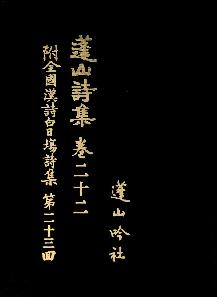 蓬山詩集 卷二十二
附全國漢詩白日場詩集 第二十三回
蓬山吟社